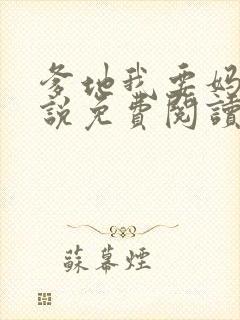 爹地我要妈
說免費閱讀
蘇幕煙